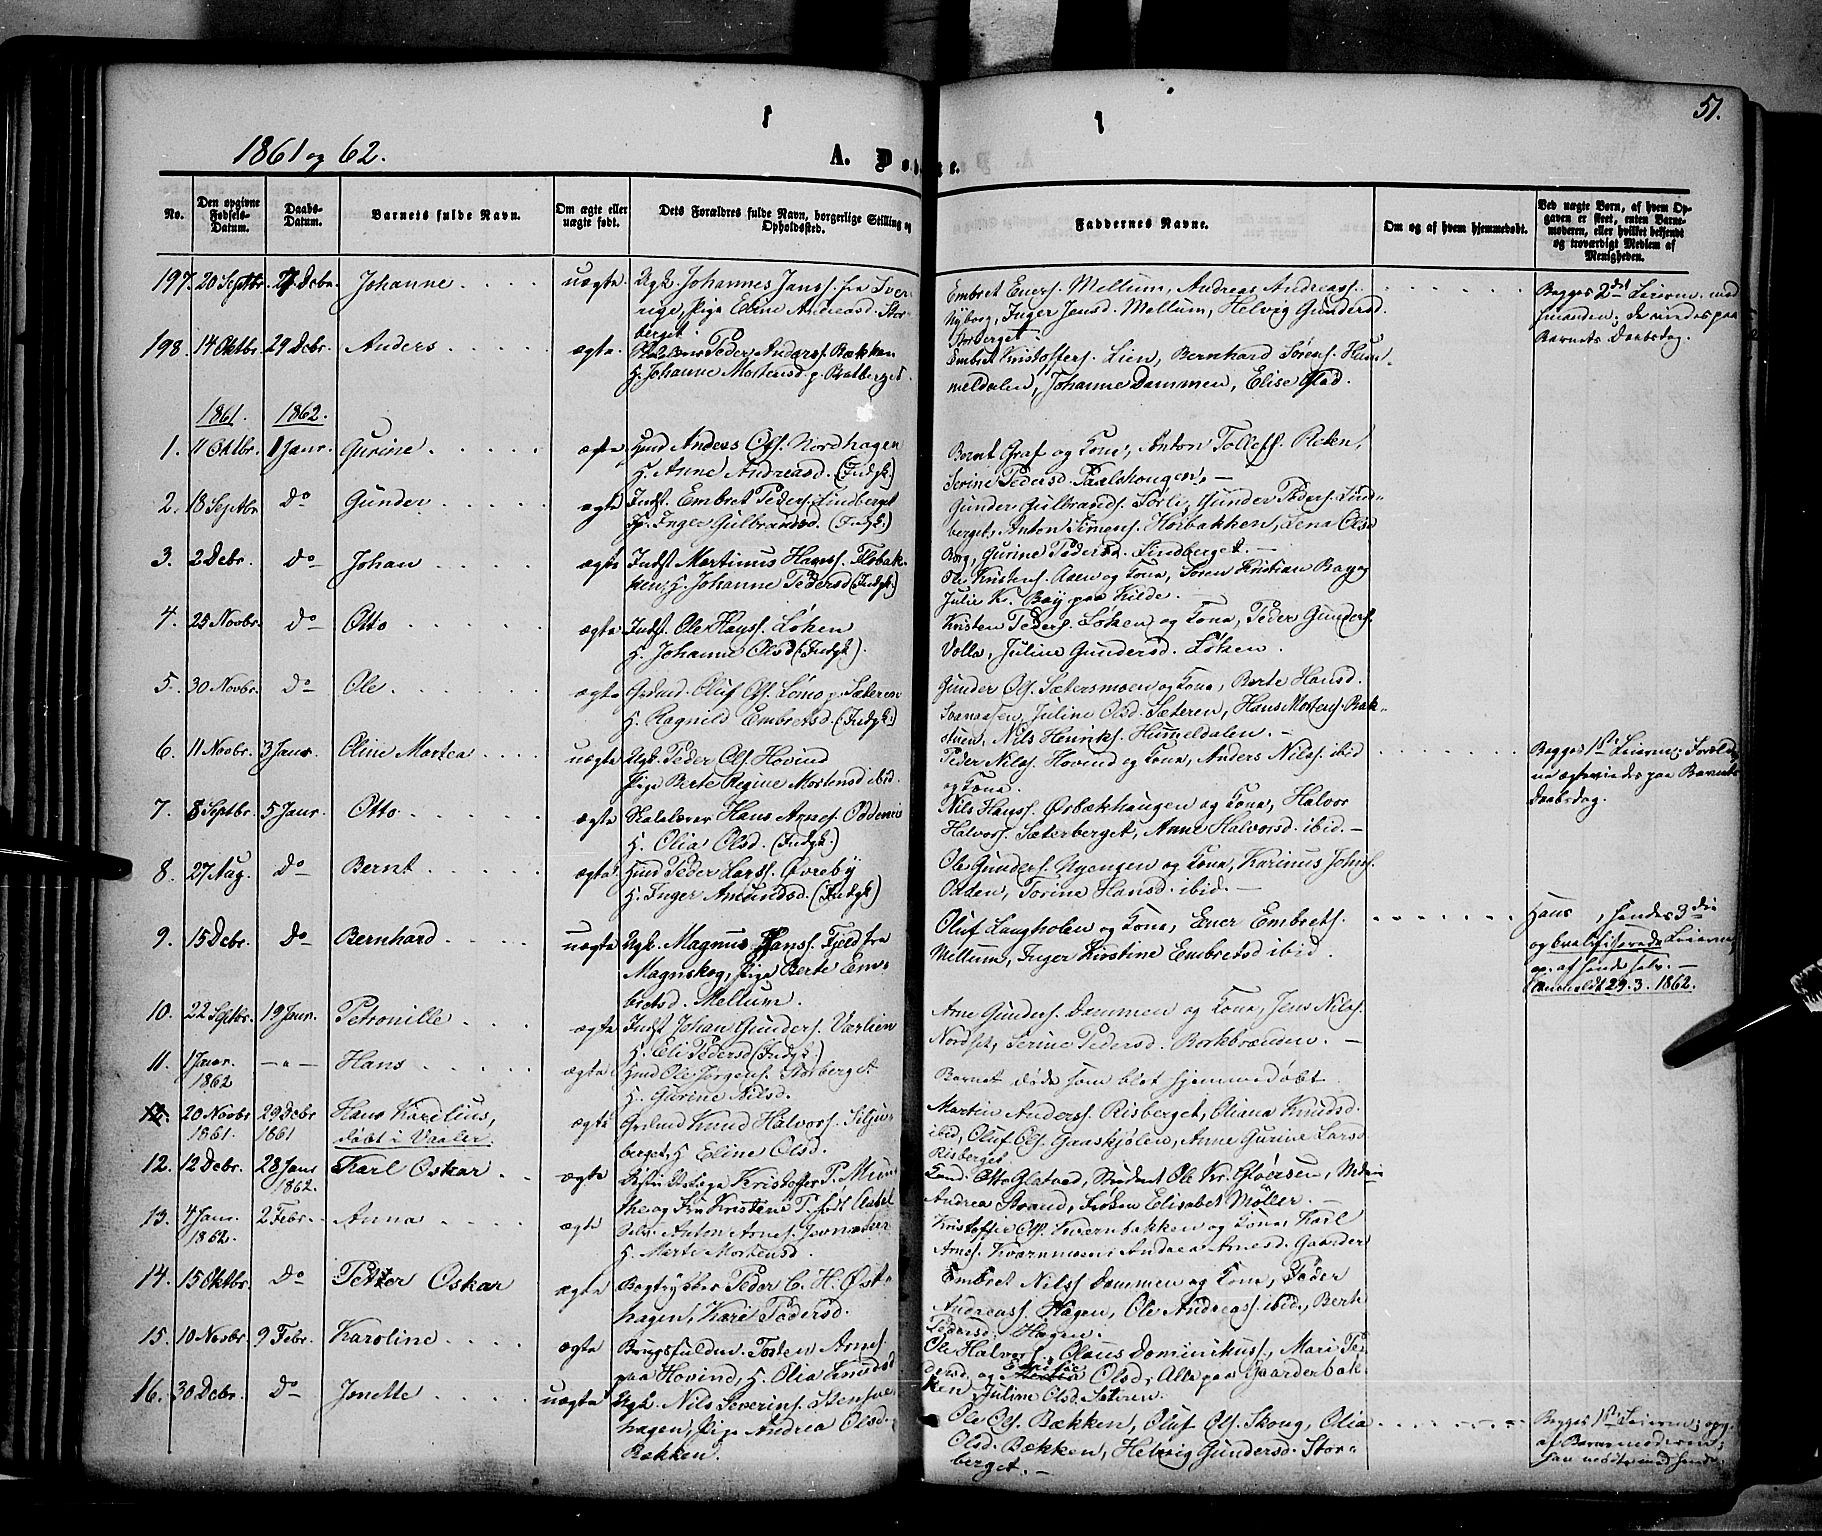 51.
1861 og 62.
A. Døbte.
No.
Den opgivne Fødsels-Datum.
Daabs-Datum.
Barnets fulde Navn.
Om ægte eller uægte født.
Dets Forældres fulde Navn, borgerlige Stilling og Opholdssted.
Faddernes Navne.
Om og af hvem hjemmedøbt.
Ved uægte Børn, af hvem Opgaven er skeet, enten Barnemoderen, eller hvilket bekjendt og troværdigt Medlem af Menigheden.
197. 20 Septbr. Debr. Johanne uægte Ugk. Johannes Janss. fra Sverrige, Pige Eline Andreasd. Storberget.
Embret Eners. Mellum, Andreas Andreass. Nyborg, Inger Jensd. Mellum, Helvig Gundersd. Storberget.
Begges 2det Leierm. de viedes paa Barnets Daabsdag.
198. 14 Oktbr. 29 Debr. Anders ægte Peder Anderss. Bækken
H. Johanne Mortensd. p. Bratberget.
Embret Kristoffers. Lien, Bernhard Sørens. Hummeldalen, Johanne Dammen, Elise Ostad.
1861. 1862.
1. 11 Oktbr. 1 Janr. Gurine ægte Gmd Anders Ols. Nordhagen
H. Anne Andreasd. (Indgk.)
Bernt Graf og Kona, Anton Tollefs. Reken, Serine Pedersd. Paalshaugen. –
2. 18 Septbr. Do Gunder ægte Indst. Embret Peders. Lindberget
H. Inger Gulbrandsd. (Indgk.)
Gunder Gulbrands. Sørli, Gunder Peders. Lindberget, Anton Simens. Hoibakken, Lena Olsd. Borg, Gurine Pedersd. Lindberget. –
3. 2 Debr. Do Johan ægte Indst. Martinus Hanss. Flobakken, H. Johanne Pedersd. (Indgk.)
Ole Kristens. Aaen og Kona, Søren Kristian Bay og Julie K. Bay paa Kilde. –
4. 25 Novbr. Do Otto ægte Indst. Ole Hanss. Løken
H. Johanne Olsd. (Indgk.)
Kristen Peders. Løken og Kona, Peder Gunders. Volla, Juline Gundersd. Løken.
5. 30 Novbr. Do Ole ægte Grdmd. Oluf Ols. Lømo p. Sæteren
H. Ragnild Embretsd. (Indgk.)
Gunder Ols. Sætersmoen og Kona, Berte Hansd. Svenaasen, Juline Olsd. Sæteren, Hans Mortens. Bakstuen, Nils Henriks. Hummeldalen. –
6. 11 Novbr. 3 Janr. Oline Martea uægte Ugk. Peder Ols. Hovind
Pige Berte Regine Mortensd. ibid.
Peder Nilss. Hovind og Kona, Anders Nilss. ibid og Kona.
Begges 1ste Leierm. Foreldrene ægteviedes paa Barnets Daabsdag.
7. 8 Septbr. 5 Janr. Otto ægte Skolelærer Hans Arnes. Oddenes
H. Olia Olsd. (Indgk.)
Nils Hanss. Øsbækhaugen og Kona, Halvor Halvors. Sæterberget, Anne Halvorsd. ibid. –
8. 27 Aug. Do Bernt ægte Gmd Peder Larss. Øvreby
H. Inger Amundsd. (Indgk.)
Ole Gunders. Nyengen og Kona, Karinus Johns. Odden, Torine Hansd. ibid. –
9. 15 Debr. Do Bernhard uægte Ugk. Magnus Hanss. Fjeld fra Magnskog, Pige Berte Embretsd. Mellum.
Oluf Langholen og Kona, Ener Embrets. Mellum, Inger Kirstine Embretsd. ibid.
Hans , hendes 3die og kvalificerede Leierm. op. af hende selv. –
Anmeldt 29. 3. 1862.
10. 22 Septbr. 19 Janr. Petronille ægte Indst. Johan Gunders. Varlien
H. Eli Pedersd. (Indgk.)
Arne Gunders. Dammen og Kona, Jens Nilss. Nordset, Serine Pedersd. Borkbrænden. –
11. 1 Janr. 1862 – " – Hans ægte Gmd Ole Jørgens. Storberget
H. Gurine Nilsd.
Barnet døde som blot hjemmedøbt.
12. 20 Novbr 1861. 29 Debr 1861 Hans Karelius, døbt i Vaaler. ægte Grdmd Knud Halvors. Silju-berget, H. Eline Olsd.
Martin Anderss. Risberget, Oliana Knudsd. ibid, Oluf Ols. Gaaskjølen, Anne Gurine Larsd. Risberget
12. 12 Debr. 28 Janr 1862. Karl Oskar ægte Læge Kristoffer P. Munthe og Fru Kristene T. født Aabel
Cand. Otto Glatved, Student Ole Kr. Gløersen, Andrea Strand, Frøken Elisabet Møller. –
13. 4 Janr. 1862. 2 Febr. Anna ægte Selv. Anton Arnes. Jernæker
H. Marte Mortensd.
Kristoffer Ols. Kvernbakken og Kona, Karl Arnes. Kvernmoen, Andrea Arnesd. Gaarder
14. 15 Oktbr. Do Petter Oskar ægte Bogtrykker Peder C. H. Østhagen, Kari Pedersd.
Embret Nilss Dammen og Kona, Peder Andreass. Hagen, Ole Andreass. ibid., Berte Pedersd. Hagen.
15. 10 Novbr. 9 Febr. Karoline ægte Brugsfuldm. Tosten Arnes. paa Hovind, H. Olia Knudsd.
Ole Halvors., Olaus Dominikuss., Mari Pedersd. og Emilie Olsd., Alle paa Gaarderbakken, Juline Olsd. Sæteren.
16. 30 Debr. Do Jonette uægte Ugk. Nils Severins. Stensvehagen, Pige Andrea Olsd. Bækken.
Ole Ols. Bækken, Oluf Ols. Skoug, Olia Olsd. Bækken, Helvig Gundersd. Storberget. –
Begges 1ste Leierm; opg. af Barnemoderen; han mødte med hende.